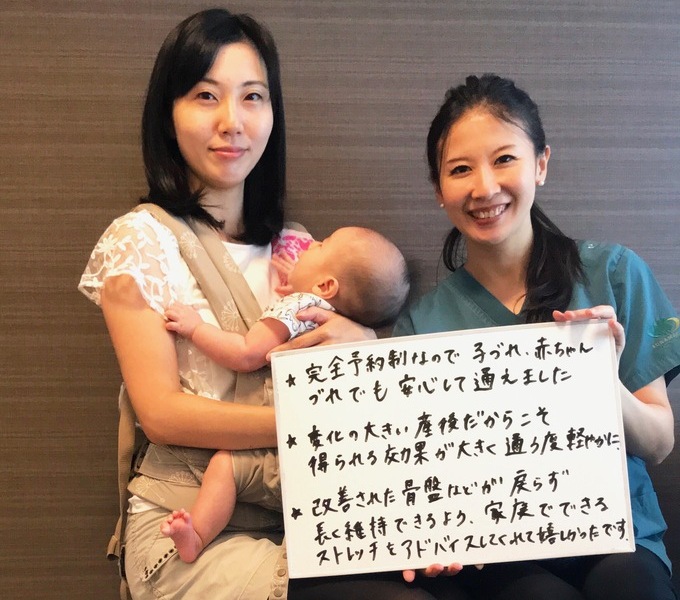 ★ 完全予約制なので 子づれ、赤ちゃん
づれでも 安心して通えました
★ 変化の大きい産後だからこそ
得られる効果が大きく通う度軽やかに。
★ 改善された骨盤などが戻らず
長く維持できるよう、家庭でできる
ストレッチをアドバイスしてくれて嬉しかったです。